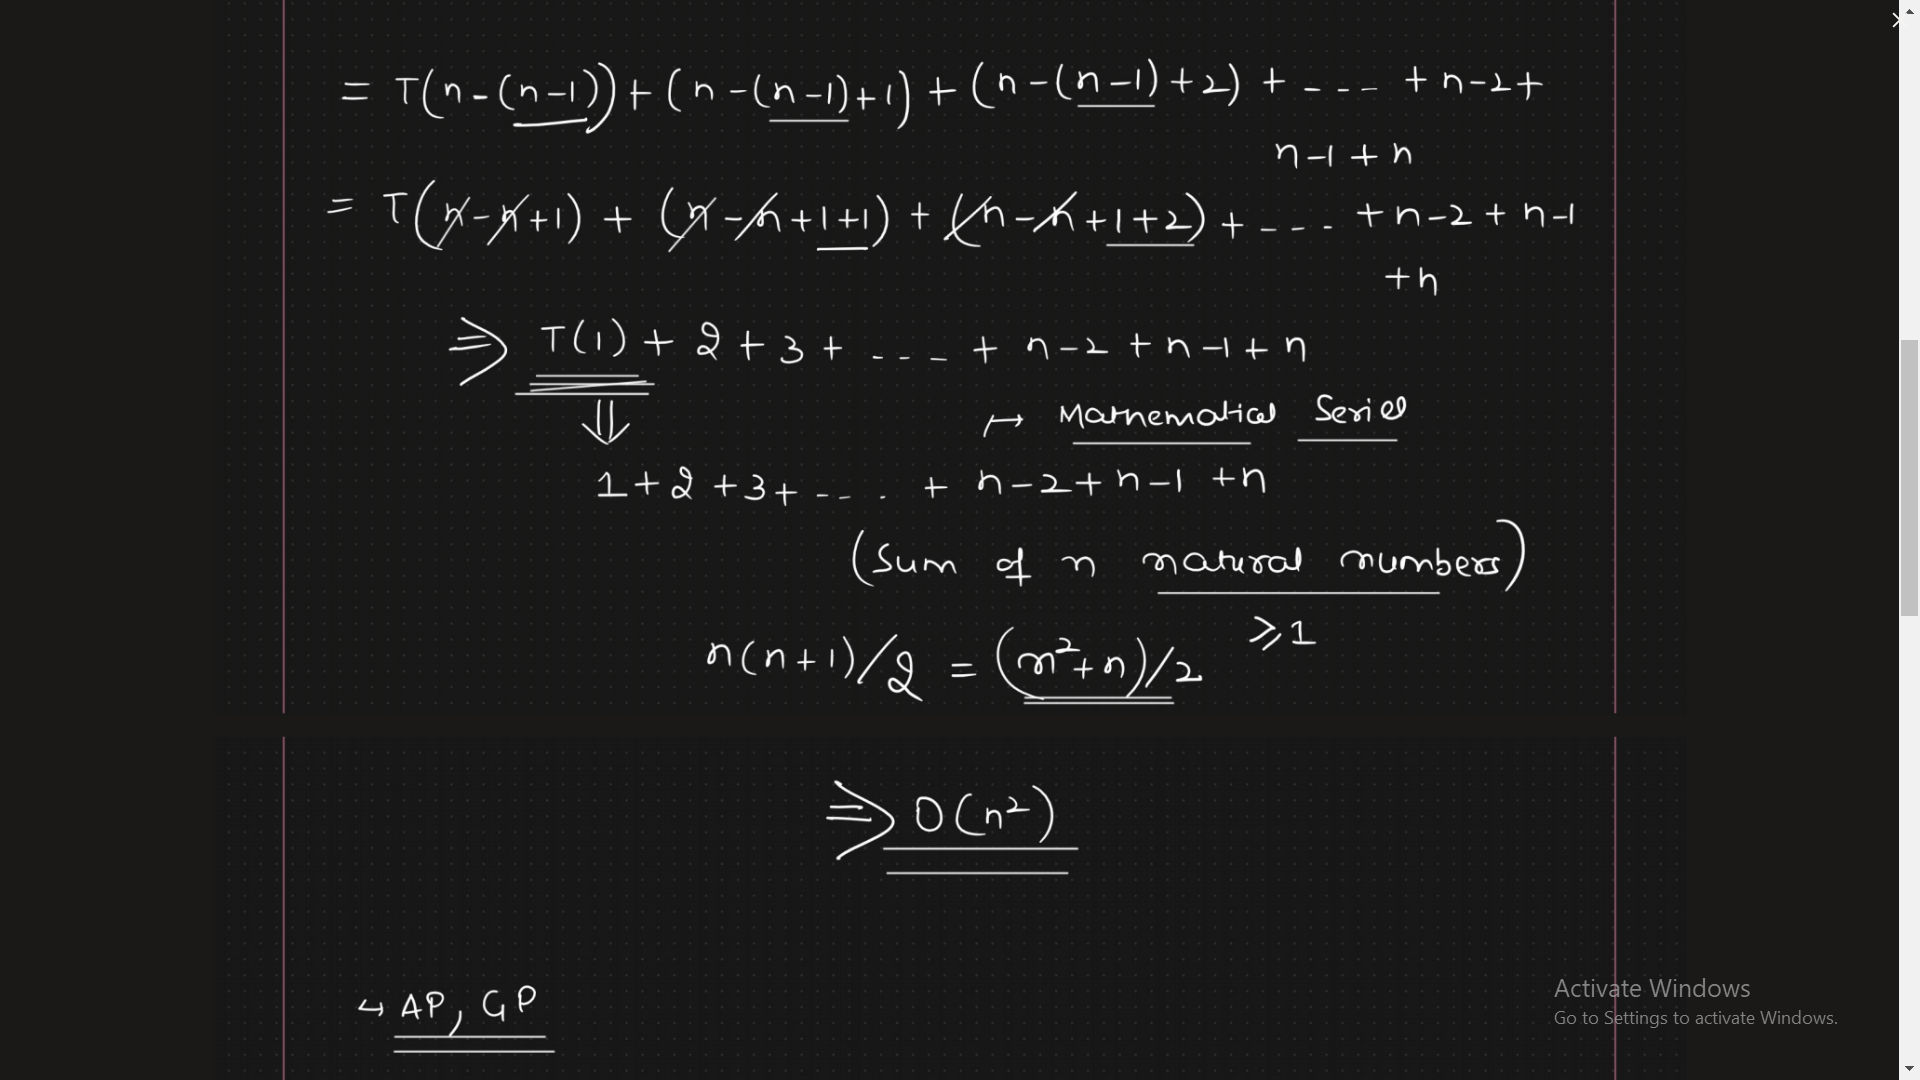 = T(n-(n-1)) + (n-(n-1)+1) + (n-(n-1)+2) + ---- + n-2 +
n-1 + n
= T(n-n+1) + (n-n+1+1) + (n-n+1+2) + ---- + n-2 + n-1
+n
⇒ T(1) + 2 + 3 + ---- + n-2 + n-1 + n
⇓
↦ Mathematical Series
1+2+3+ ---- + n-2+n-1+n
(Sum of n natural numbers)
≥1
n(n+1)/2 = (n²+n)/2
⇒ O(n²)
↪ AP, GP
Activate Windows
Go to Settings to activate Windows.